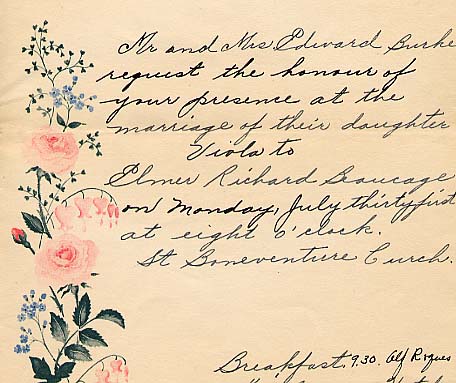 Mr and Mrs Edward Burke
request the honour of
your presence at the
marriage of their daughter
Viola to
Elmer Richard Beaucage
on Monday, July thirtyfirst
at eight o'clock.
St Boneventure Curch.
Breakfast. 9.30. Alf Rogues